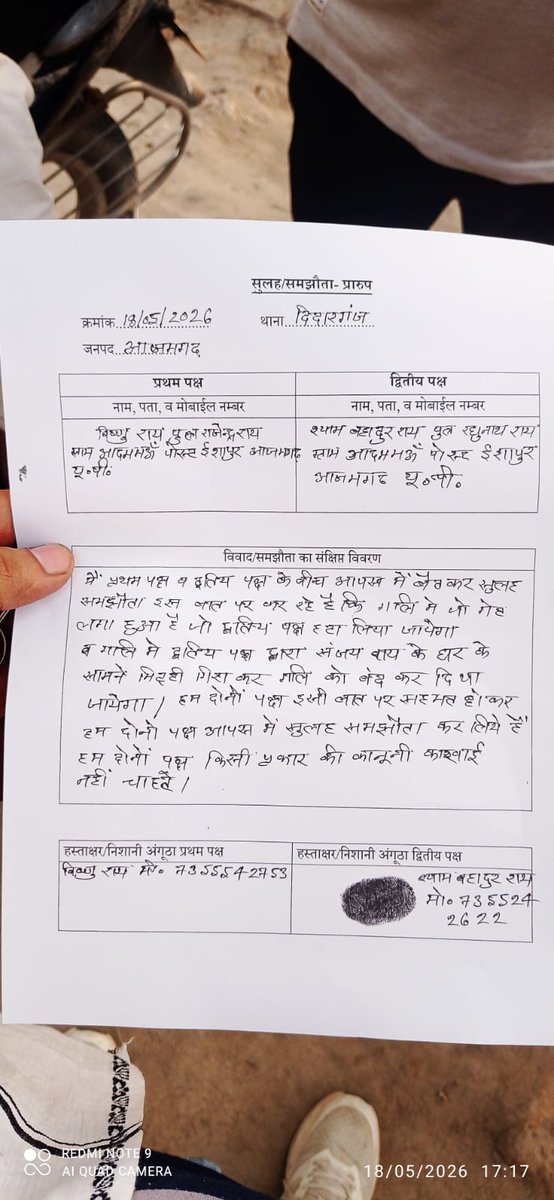 सुलह/समझौता- प्रारुप
क्रमांक 18/05/2026 थाना दिदारगंज
जनपद आजमगढ
प्रथम पक्ष द्वितीय पक्ष
नाम, पता, व मोबाईल नम्बर नाम, पता, व मोबाईल नम्बर
विष्णु राय पुत्र राजेन्द्र राय
ग्राम आदममऊँ पोस्ट ईशापुर आजमगढ
यू॰पी॰
श्याम बहादुर राय पुत्र रघुनाथ राय
ग्राम आदममऊँ पोस्ट ईशापुर
आजमगढ यू॰पी॰
विवाद/समझौता का संक्षिप्त विवरण
में प्रथम पक्ष व द्वतिय पक्ष के बीच आपस में बैठ कर सुलह
समझौता इस बात पर कर रहे है कि गलि मे जो गेट
लगा हुआ है जो द्वतिय पक्ष हटा लिया जायेगा
व गलि मे द्वतिय पक्ष द्वारा संजय राय के घर के
सामने मिट्टी गिरा कर गलि को बंद कर दिया
जायेगा। हम दोनों पक्ष इसी बात पर सहमत हो कर
हम दोनो पक्ष आपस में सुलह समझौता कर लिये हैं
हम दोनों पक्ष किसी प्रकार की कानूनी कारवाई
नहीं चाहते।
हस्ताक्षर/निशानी अंगूठा प्रथम पक्ष हस्ताक्षर/निशानी अंगूठा द्वितीय पक्ष
विष्णु राय मो॰ 7355542753
श्याम बहादुर राय
मो॰ 735524
2622
REDMI NOTE 9
AI QUAD CAMERA
18/05/2026 17:17